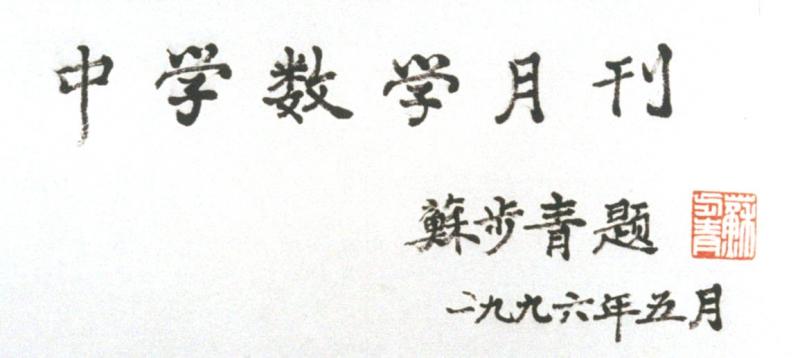 中学数学月刊
蘇步青题
一九九六年五月
蘇步青